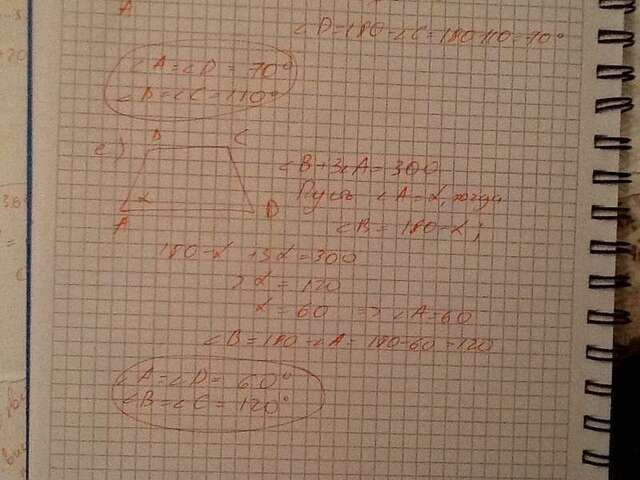 A
∠D=180-∠C=180-110=70°
∠A=∠D=70°
∠B=∠C=110°
е)
B C
∠B+3∠A=300
Пусть ∠A=α, тогда
α
∠B=180-α;
A D
180-α+3α=300
2α=120
α=60 => ∠A=60
∠B=180-∠A=180-60=120
∠A=∠D=60°
∠B=∠C=120°